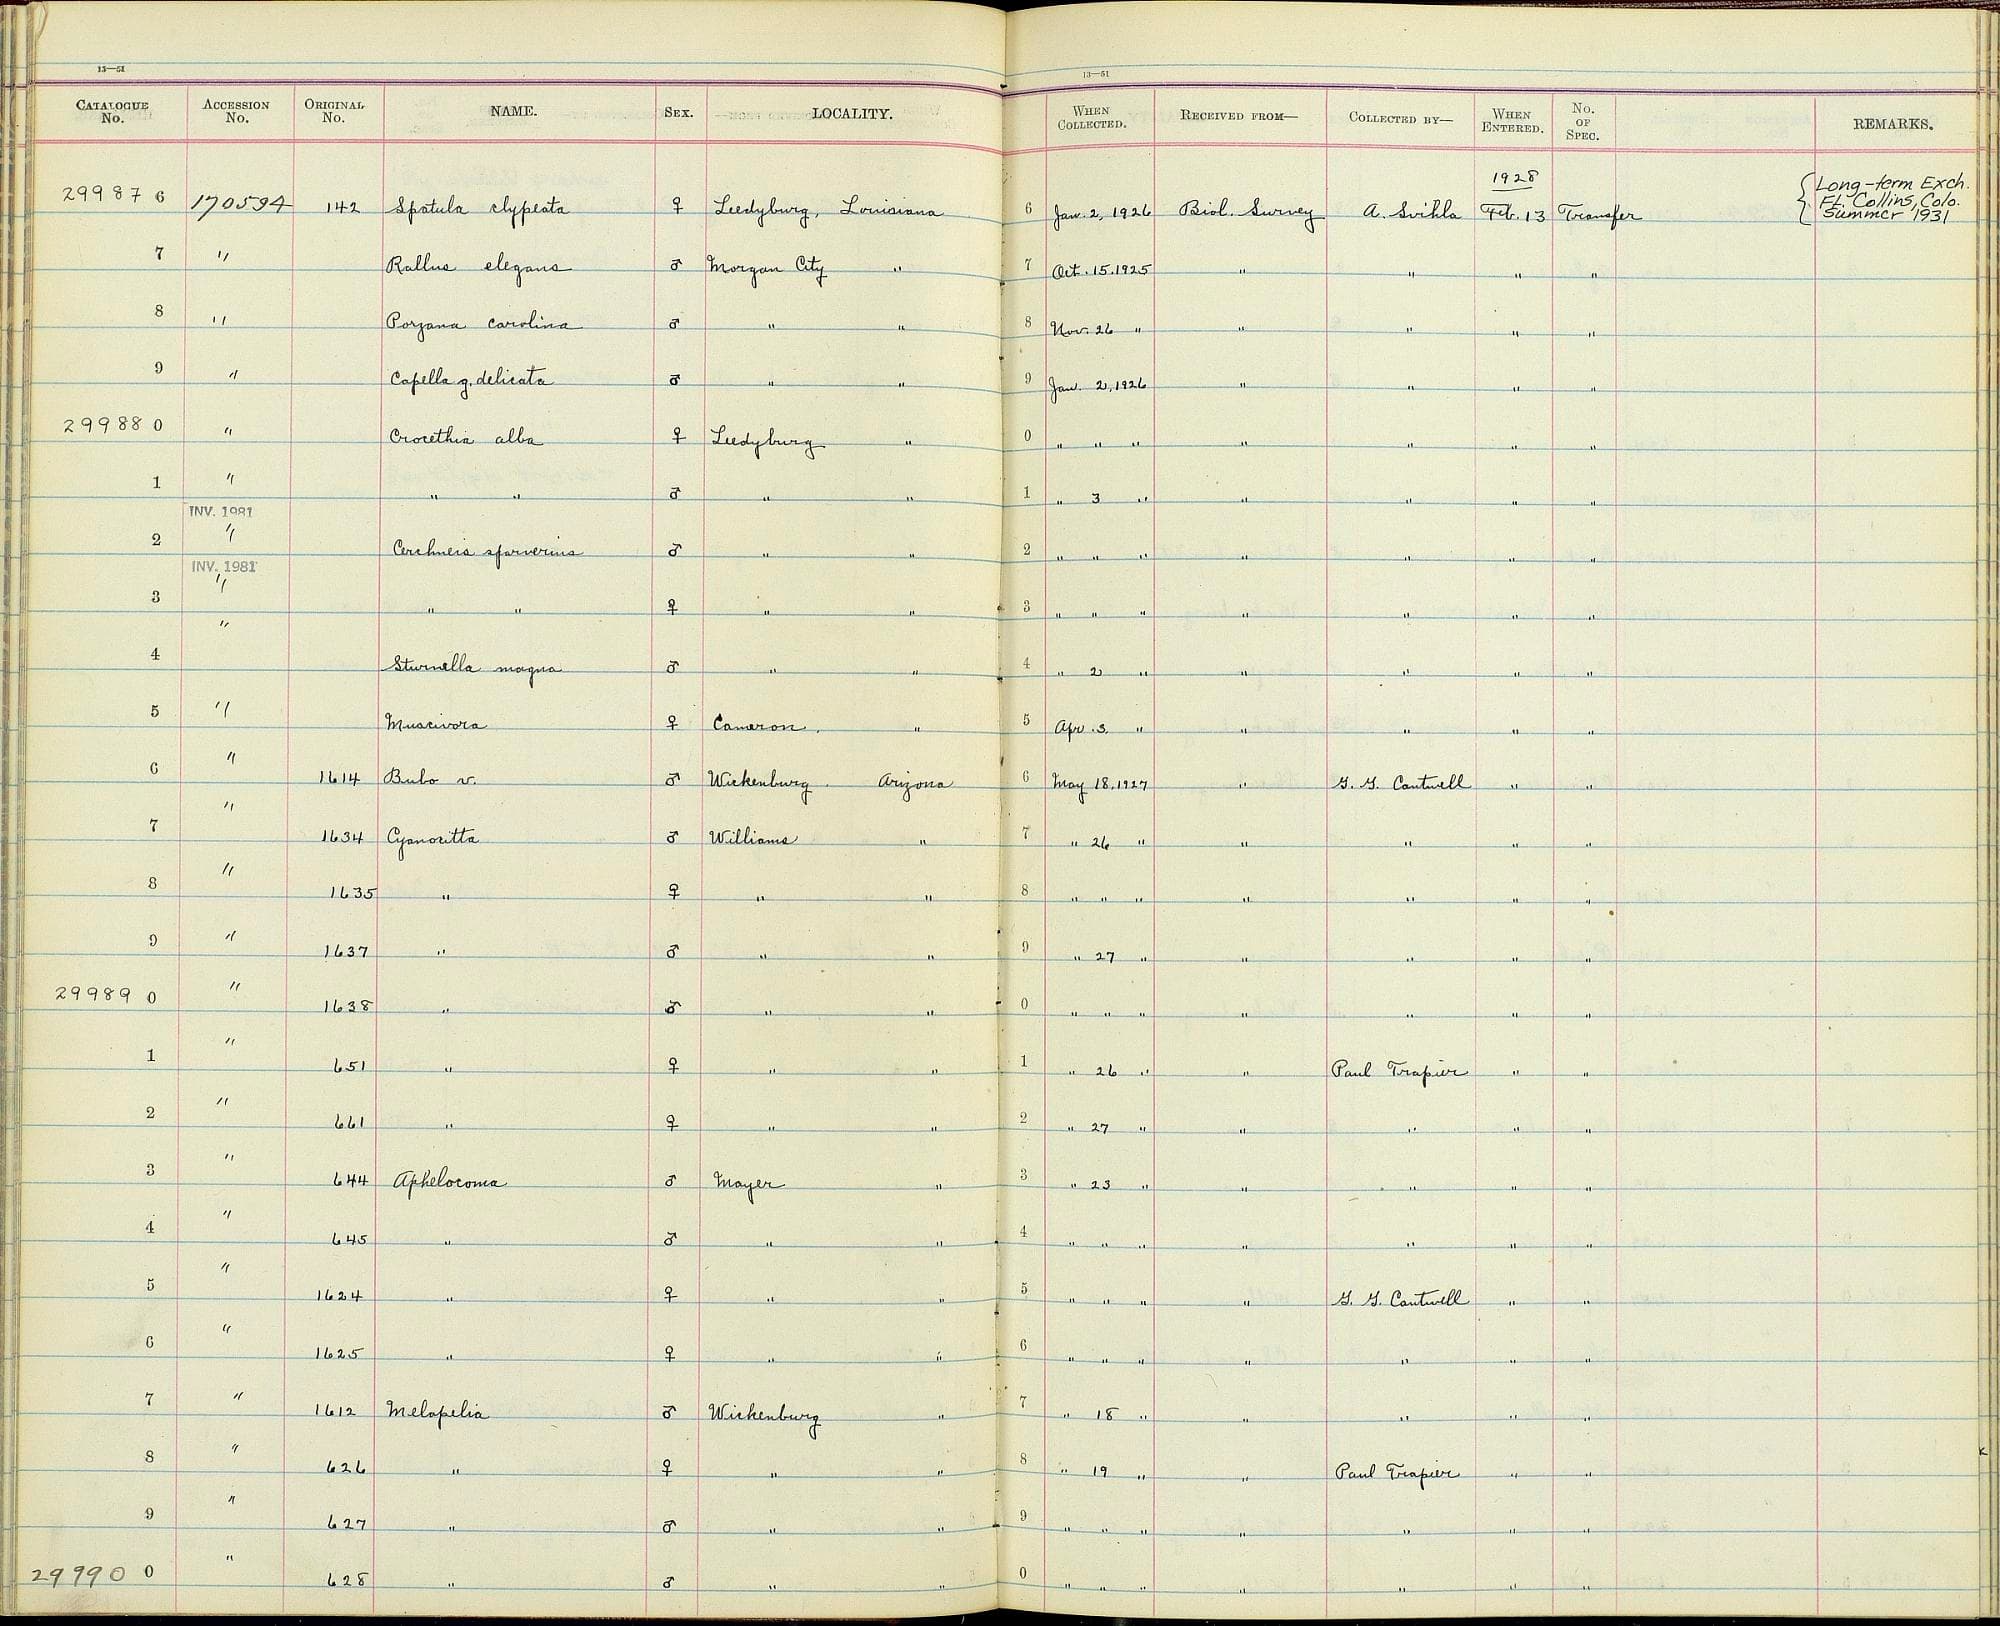 13—51
13—51
CATALOGUE No. ACCESSION No. ORIGINAL No. NAME. SEX. LOCALITY. WHEN COLLECTED. RECEIVED FROM— COLLECTED BY— WHEN ENTERED. No. OF SPEC. REMARKS.
1928
29987 6 170594 142 Spatula clypeata ♀ Leedyburg, Louisiana 6 Jan. 2, 1926 Biol. Survey A. Svihla Feb. 13 Transfer { Long-term Exch. Ft. Collins, Colo. Summer 1931
7 " Rallus elegans ♂ Morgan City " 7 Oct. 15. 1925 " " " "
8 " Porzana carolina ♂ " " 8 Nov. 26 " " " " "
9 " Capella g. delicata ♂ " " 9 Jan. 2, 1926 " " " "
29988 0 " Crocethia alba ♀ Leedyburg " 0 " " " " " " "
1 " " " ♂ " " 1 " 3 " " " " "
INV. 1981
2 " Cerchneis sparverius ♂ " " 2 " " " " " " "
INV. 1981
3 " " " ♀ " " 3 " " " " " " "
4 " Sturnella magna ♂ " " 4 " 2 " " " " "
5 " Muscivora ♀ Cameron. " 5 Apr. 3. " " " " "
6 " 1614 Bubo v. ♂ Wickenburg. Arizona 6 May 18, 1927 " G. G. Cantwell " "
7 " 1634 Cyanocitta ♂ Williams " 7 " 26 " " " " "
8 " 1635 " ♀ " " 8 " " " " " " "
9 " 1637 " ♂ " " 9 " 27 " " " " "
29989 0 " 1638 " ♂ " " 0 " " " " " " "
1 " 651 " ♀ " " 1 " 26 " " Paul Trapier " "
2 " 661 " ♀ " " 2 " 27 " " " " "
3 " 644 Aphelocoma ♂ Mayer " 3 " 23 " " " " "
4 " 645 " ♂ " " 4 " " " " " " "
5 " 1624 " ♀ " " 5 " " " " G. G. Cantwell " "
6 " 1625 " ♀ " " 6 " " " " " " "
7 " 1612 Melopelia ♂ Wickenburg " 7 " 18 " " " " "
8 " 626 " ♀ " " 8 " 19 " " Paul Trapier " "
9 " 627 " ♂ " " 9 " " " " " " "
29990 0 " 628 " ♂ " " 0 " " " " " " "